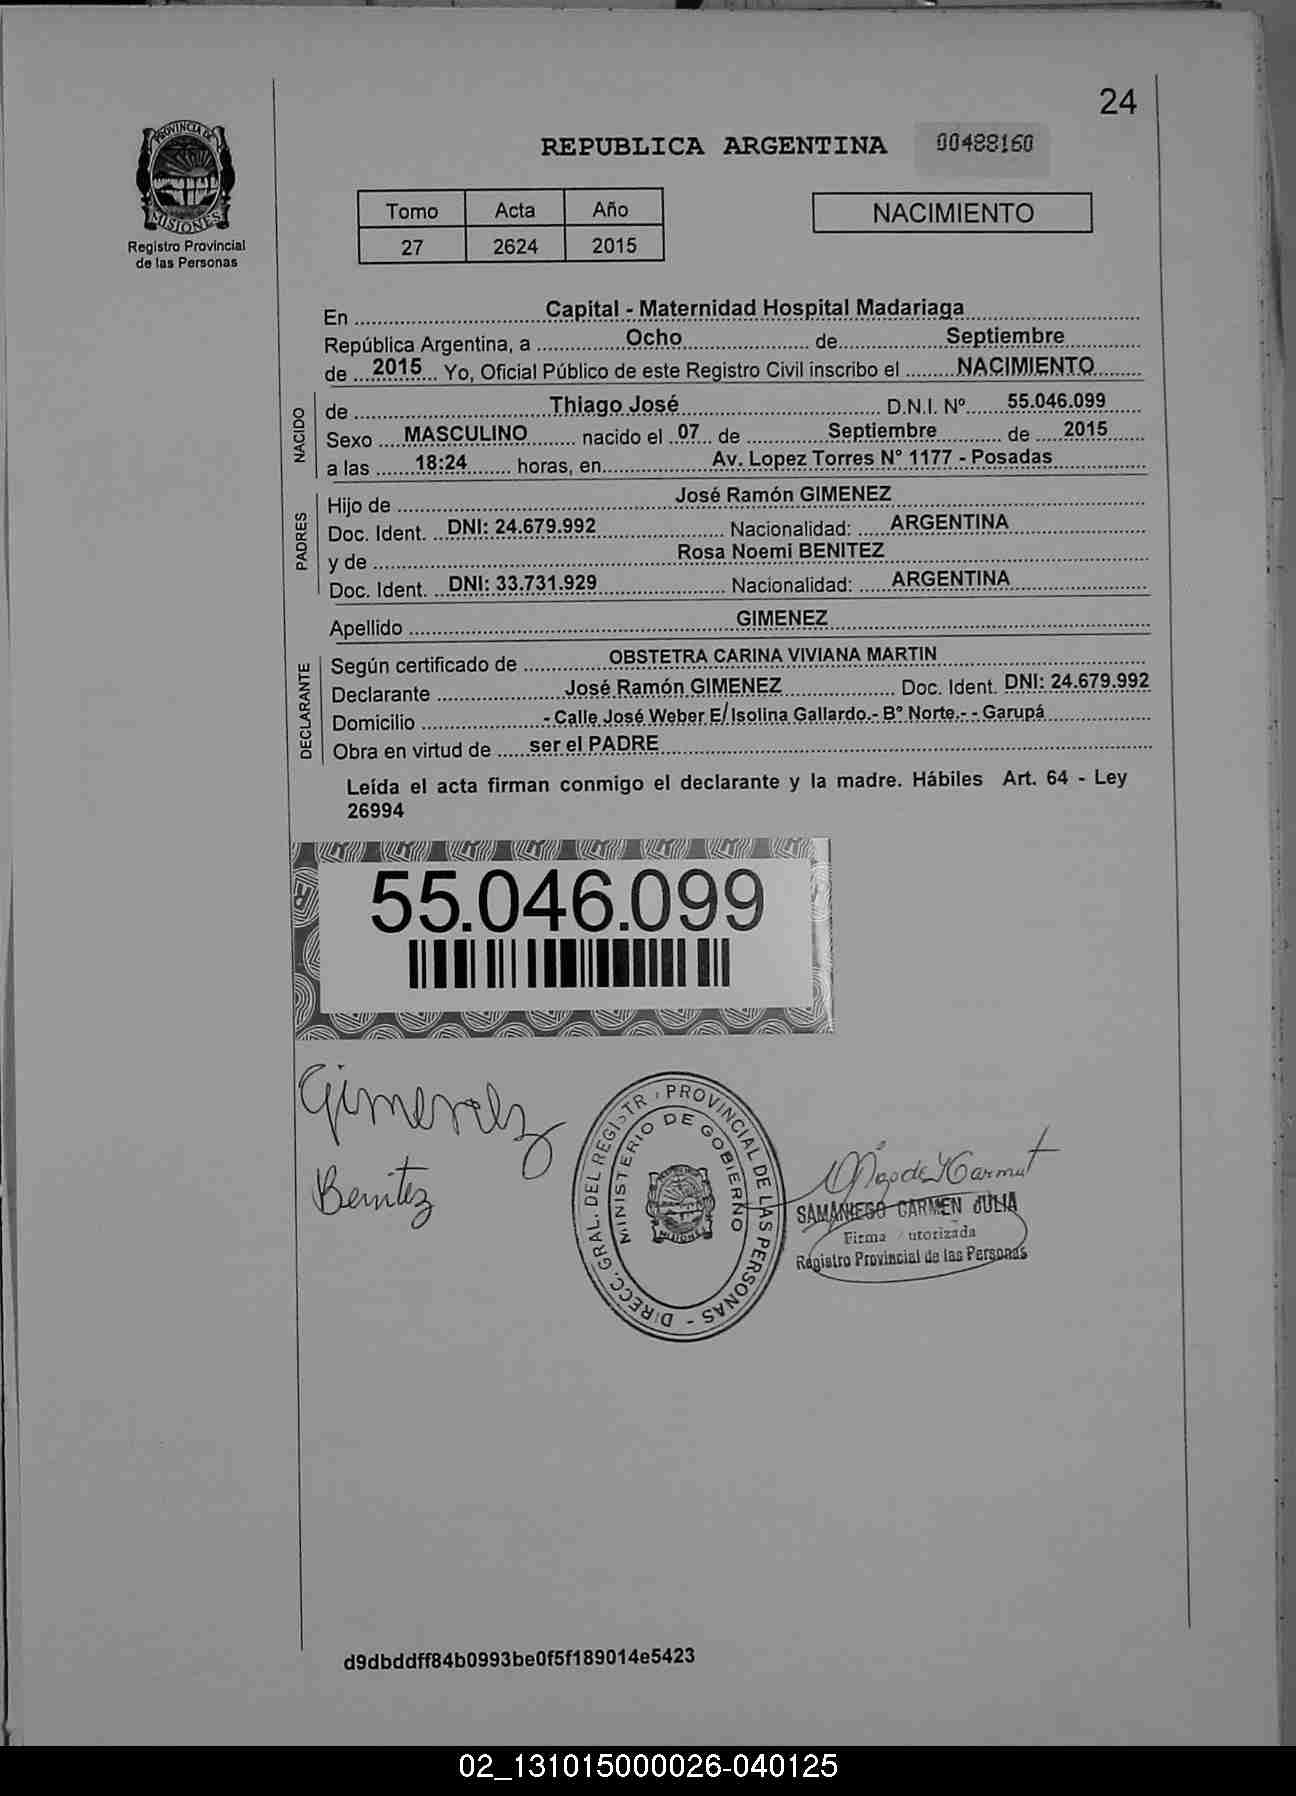 24
PROVINCIA DE
MISIONES
Registro Provincial
de las Personas
REPUBLICA ARGENTINA
00488160
Tomo Acta Año
27 2624 2015
NACIMIENTO
En Capital - Maternidad Hospital Madariaga
República Argentina, a Ocho de Septiembre
de 2015 Yo, Oficial Público de este Registro Civil inscribo el NACIMIENTO
NACIDO
de Thiago José D.N.I. Nº 55.046.099
Sexo MASCULINO nacido el 07 de Septiembre de 2015
a las 18:24 horas, en Av. Lopez Torres N° 1177 - Posadas
PADRES
Hijo de José Ramón GIMENEZ
Doc. Ident. DNI: 24.679.992 Nacionalidad: ARGENTINA
y de Rosa Noemi BENITEZ
Doc. Ident. DNI: 33.731.929 Nacionalidad: ARGENTINA
Apellido GIMENEZ
DECLARANTE
Según certificado de OBSTETRA CARINA VIVIANA MARTIN
Declarante José Ramón GIMENEZ Doc. Ident. DNI: 24.679.992
Domicilio - Calle José Weber E/ Isolina Gallardo.- B° Norte.- - Garupá
Obra en virtud de ser el PADRE
Leída el acta firman conmigo el declarante y la madre. Hábiles Art. 64 - Ley
26994
55.046.099
Gimenez
Benitez
DIRECC. GRAL. DEL REGISTR PROVINCIAL DE LAS PERSONAS -
MINISTERIO DE GOBIERNO
MISIONES
SAMANIEGO CARMEN JULIA
Firma utorizada
Registro Provincial de las Personas
d9dbddff84b0993be0f5f189014e5423
02_131015000026-040125